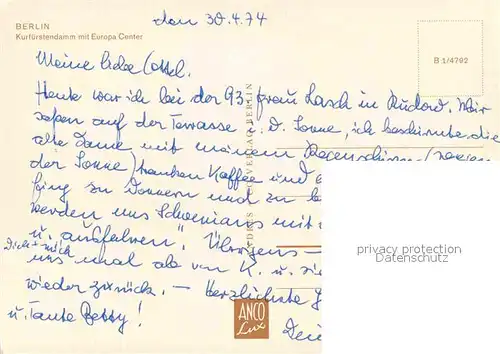 BERLIN
Kurfürstendamm mit Europa Center
den 30.4.74
B 1/4792
Meine liebe
Heute war ich bei der 93. Frau Lasch in Rudow. Wir
saßen auf der Terrasse i. d. Sonne, ich beschirmte die
alte Dame mit meinem Regenschirm (wegen
der Sonne) tranken Kaffee und
fing zu Donnern und zu
werden uns Schoemans mit
u. ausfahren". Übrigens —
Dich + mich
uns mal ab von K. u.
wieder zurück. — Herzlichste
u. Tante Betty!
privacy protection
Datenschutz
ANCO
Lux